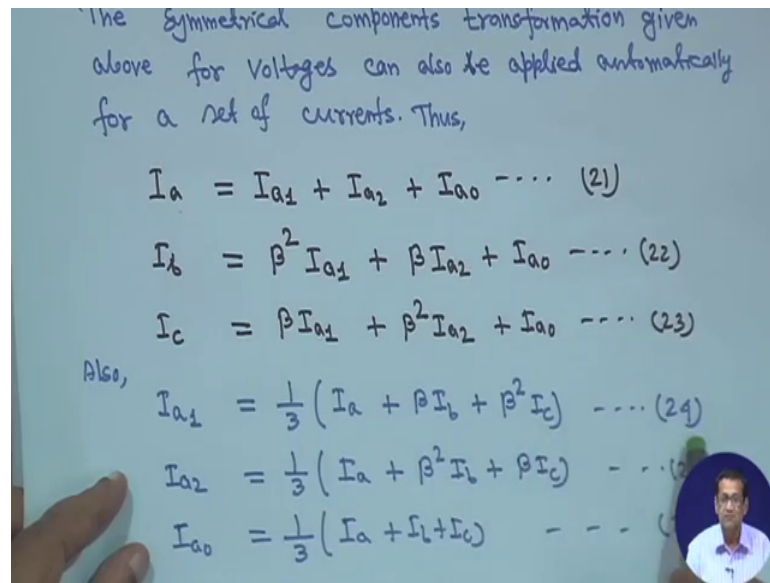 The Symmetrical components transformation given
above for voltages can also be applied automatically
for a set of currents. Thus,
Ia = Ia1 + Ia2 + Ia0 ---- (21)
Ib = β² Ia1 + β Ia2 + Ia0 ---- (22)
Ic = β Ia1 + β² Ia2 + Ia0 ---- (23)
Also,
Ia1 = 1/3 ( Ia + β Ib + β² Ic) ---- (24)
Ia2 = 1/3 ( Ia + β² Ib + β Ic) - --
Ia0 = 1/3 ( Ia + Ib + Ic) - - -